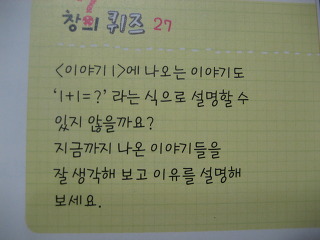 창의 퀴즈 27
<이야기 1>에 나오는 이야기도
'1+1=?' 라는 식으로 설명할 수
있지 않을까요?
지금까지 나온 이야기들을
잘 생각해 보고 이유를 설명해
보세요.